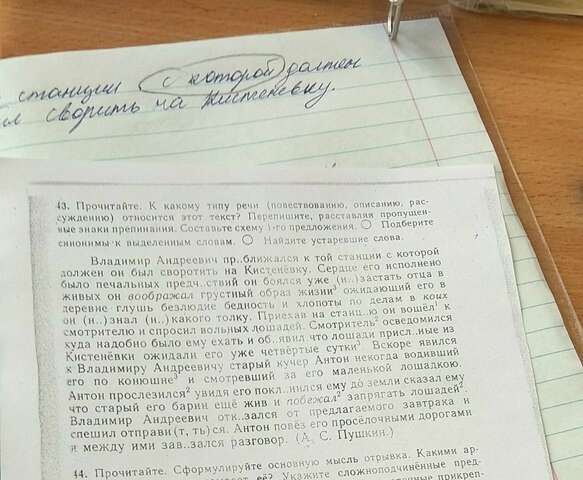 станции с которой должен
л своритъ на Кистенёвку.
43. Прочитайте. К какому типу речи (повествованию, описанию, рас-
суждению) относится этот текст? Перепишите, расставляя пропущен-
ные знаки препинания. Составьте схему 1-го предложения. ○ Подберите
синонимы к выделенным словам. ○ Найдите устаревшие слова.
Владимир Андреевич пр..ближался к той станции с которой
должен он был своротить на Кистенёвку. Сердце его исполнено
было печальных предч..ствий он боялся уже (н..)застать отца в
живых он воображал грустный образ жизни³ ожидающий его в
деревне глушь безлюдие бедность и хлопоты по делам в коих
он (н..)знал (н..) какого толку. Приехав на станц..ю он вошёл¹ к
смотрителю и спросил вольных лошадей. Смотритель² осведомился
куда надобно было ему ехать и об..явил что лошади присл..ные из
Кистенёвки ожидали его уже четвёртые сутки³ Вскоре явился
к Владимиру Андреевичу старый кучер Антон некогда водивший
его по конюшне³ и смотревший за его маленькой лошадкою.
Антон прослезился² увидя его покл..нился ему до земли сказал ему
что старый его барин ещё жив и побежал² запрягать лошадей².
Владимир Андреевич отк..зался от предлагаемого завтрака и
спешил отправи(т, ть)ся. Антон повёз его просёлочными дорогами
и между ими зав..зался разговор. (А. С. Пушкин.)
44. Прочитайте. Сформулируйте основную мысль отрывка. Какими ар-
её? Укажите сложноподчинённые пред-
прикреп-